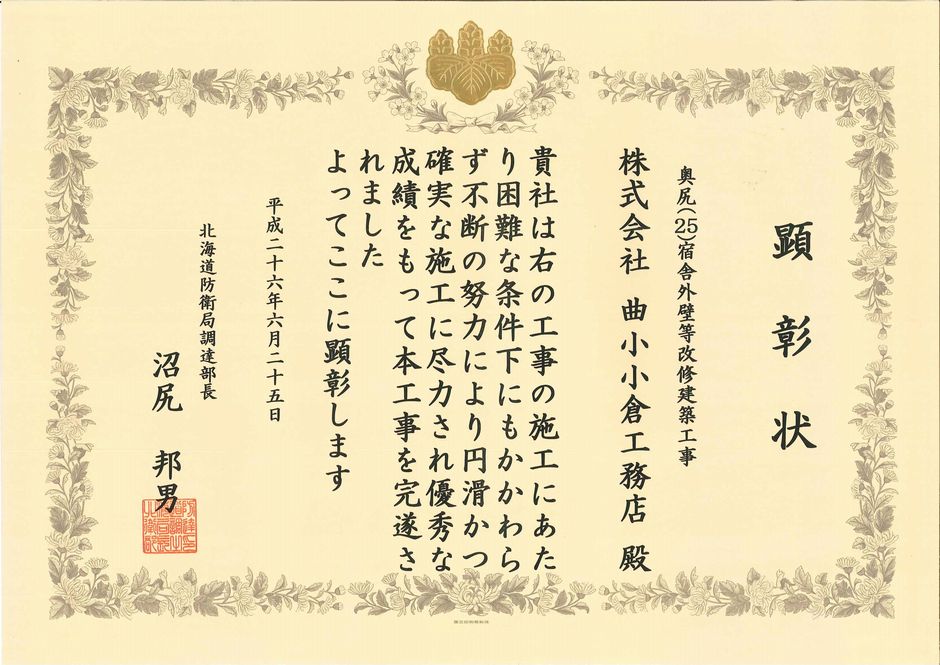 顕彰状
奥尻(25)宿舎外壁等改修建築工事
株式会社 曲小小倉工務店 殿
貴社は右の工事の施工にあた
り困難な条件下にもかかわら
ず不断の努力により円滑かつ
確実な施工に尽力され優秀な
成績をもって本工事を完遂さ
れました
よってここに顕彰します
平成二十六年六月二十五日
北海道防衛局調達部長
沼尻 邦男